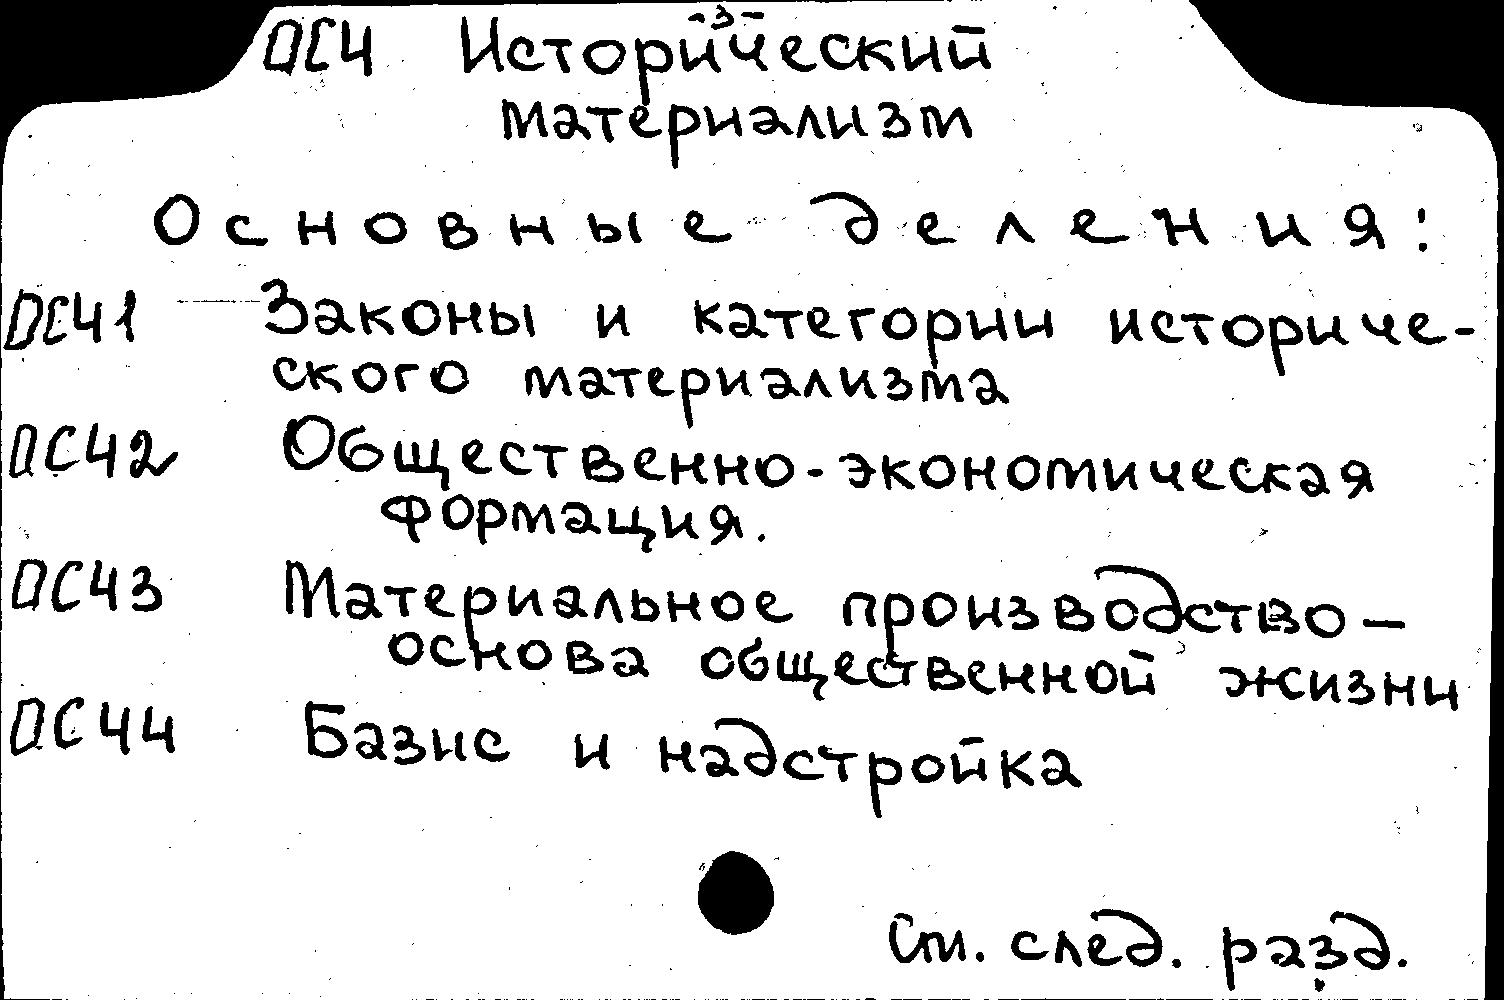 -3-
ОС4 Исторический
материализм
Основные деления:
ОС41 Законы и категории историче-
ского материализма
ОС42 Общественно-экономическая
формация.
ОС43 Материальное производство —
основа общественной жизни
ОС44 Базис и надстройка
См. след. разд.